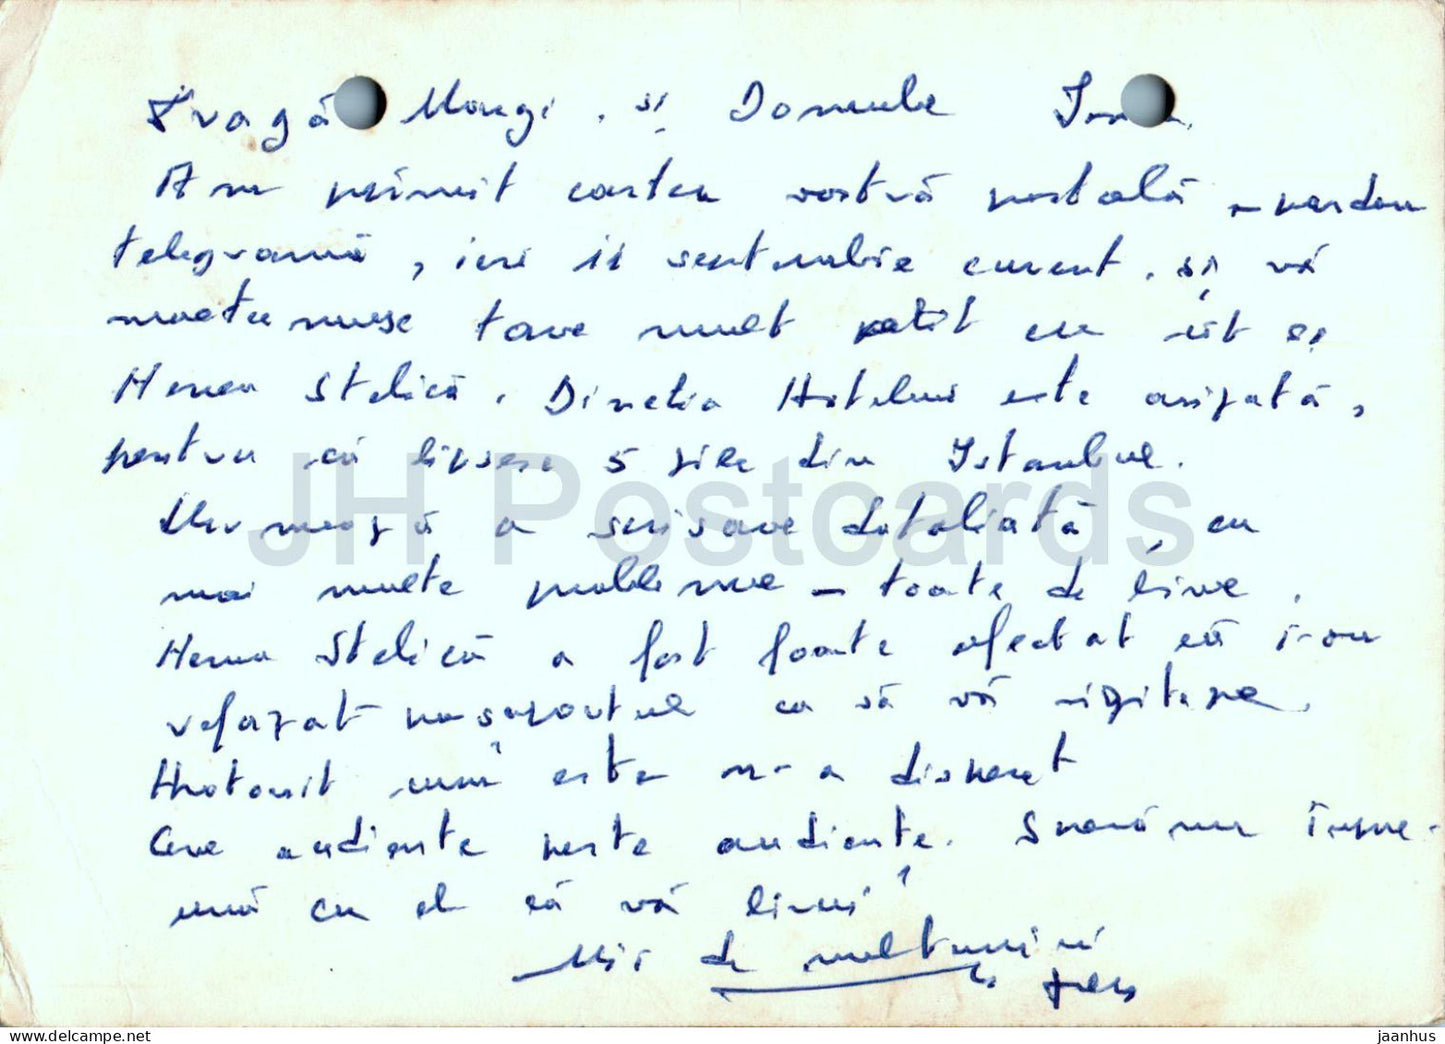 Dragă Mongi. și Domnule
Am primit cartea vostră postală – pardon
telegramă, ieri 11 septembrie curent. și vă
mulțumesc tare mult atât eu cît și
Nenea Stelică. Direcția Hotelului este avizată,
pentru că lipsesc 5 zile din Istanbul.
Urmează o scrisare detaliată, cu
mai multe probleme – toate de bine.
Nenea Stelică a fost foarte afectat că i-au
refuzat pașaportul ca să vă viziteze.
Hotărît cum este n-a disperat
Cere audiente peste audiențe. Sperăm împre-
ună cu el că vă veni
Mii de mulțumiri
JH Postcards
jaanhus